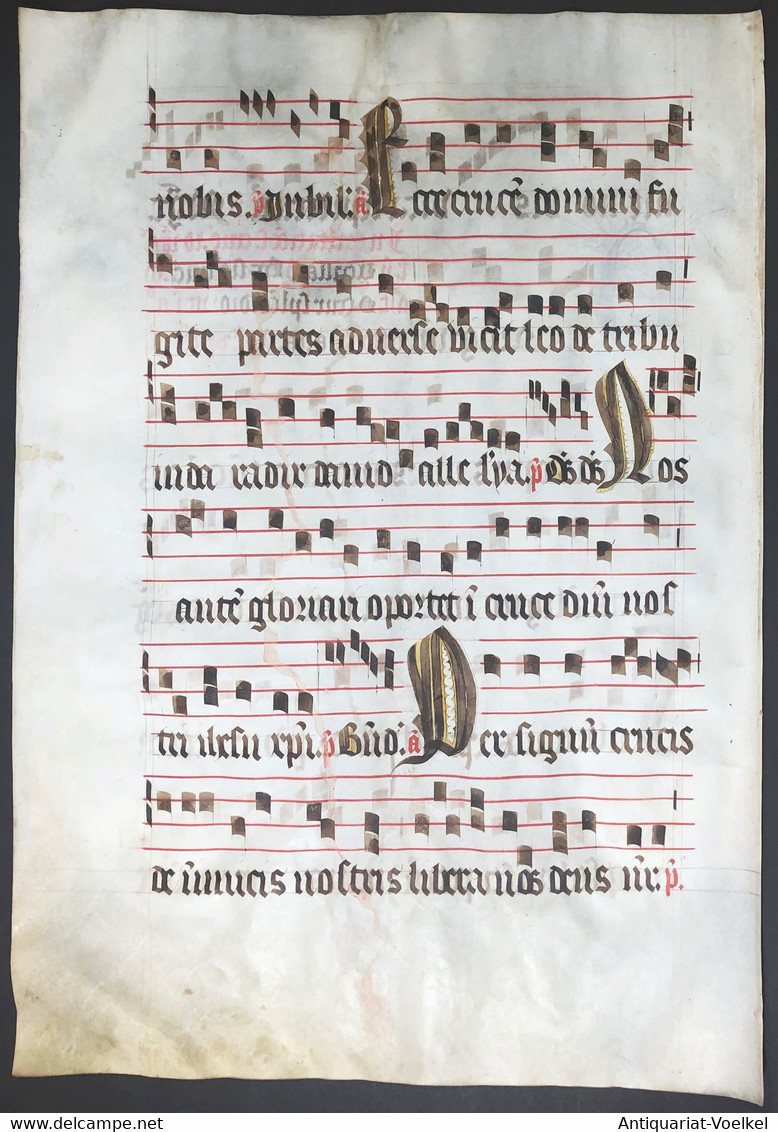 nobis. p̄ Iubil'. a̅ Ecce crucē domini fu
gite partes adverse vicit leo de tribu
iuda radix david alle lȳa. p̄ D̄s d̄s Nos
autē gloriari oportet ī cruce dn̄i nos
tri ihesu xp̄i. p̄ Bn̄d'. a̅ Per signū crucis
de īnimicis nostris libera nos deus nr̄. p̄.
Antiquariat-Voelkel